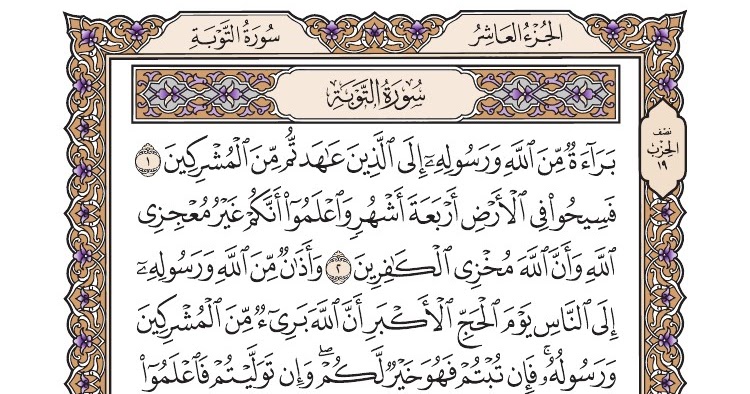 الجُزْءُ العَاشِر
سُورَةُ التَّوْبَةِ
سُورَةُ التَّوْبَةِ
نصف
الحِزْب
١٩
بَرَآءَةٌ مِّنَ ٱللَّهِ وَرَسُولِهِۦٓ إِلَى ٱلَّذِينَ عَٰهَدتُّم مِّنَ ٱلْمُشْرِكِينَ ١
فَسِيحُوا۟ فِى ٱلْأَرْضِ أَرْبَعَةَ أَشْهُرٍ وَٱعْلَمُوٓا۟ أَنَّكُمْ غَيْرُ مُعْجِزِى
ٱللَّهِ وَأَنَّ ٱللَّهَ مُخْزِى ٱلْكَٰفِرِينَ ٢ وَأَذَٰنٌ مِّنَ ٱللَّهِ وَرَسُولِهِۦٓ
إِلَى ٱلنَّاسِ يَوْمَ ٱلْحَجِّ ٱلْأَكْبَرِ أَنَّ ٱللَّهَ بَرِىٓءٌ مِّنَ ٱلْمُشْرِكِينَ
وَرَسُولُهُۥ ۚ فَإِن تُبْتُمْ فَهُوَ خَيْرٌ لَّكُمْ ۖ وَإِن تَوَلَّيْتُمْ فَٱعْلَمُوٓا۟